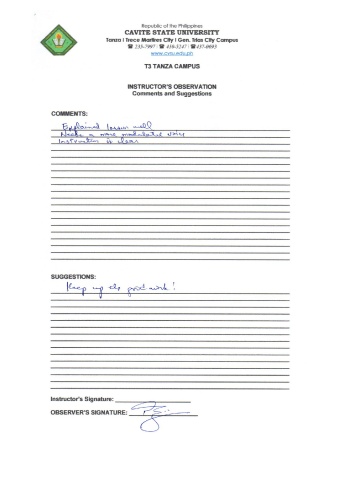 Republic of the Philippines
CAVITE STATE UNIVERSITY
Tanza | Trece Martires City | Gen. Trias City Campus
☎ 235-7997 ☎ 416-5247 ☎ 437-0693
www.cvsu.edu.ph
T3 TANZA CAMPUS
INSTRUCTOR'S OBSERVATION
Comments and Suggestions
COMMENTS:
Explained lesson well
Needs a more modulated voice
Instruction is clear
SUGGESTIONS:
Keep up the good work!
Instructor's Signature:
OBSERVER'S SIGNATURE: